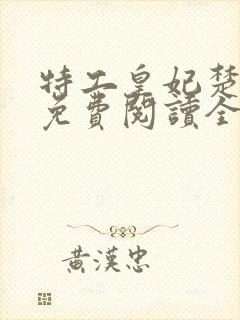 特工皇妃楚
免費閱讀全
黃漢忠